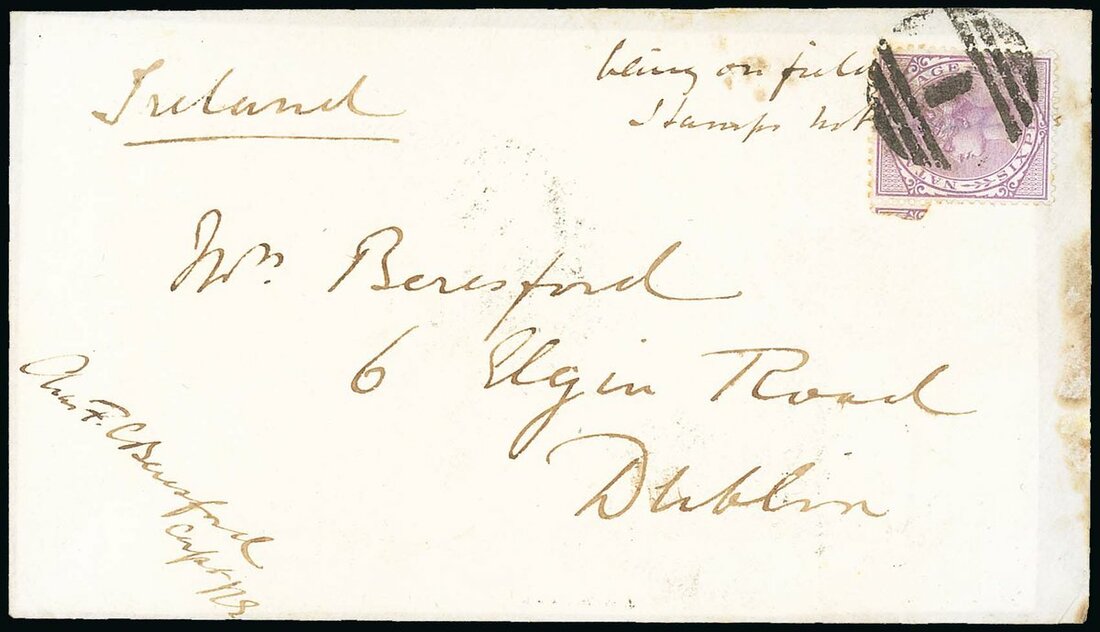 Ireland
being on field
Stamps not
POSTAGE
NATAL
SIXPENCE
Mrs. Beresford
6 Elgin Road
Dublin
Chas F. C Beresford
Capt RE